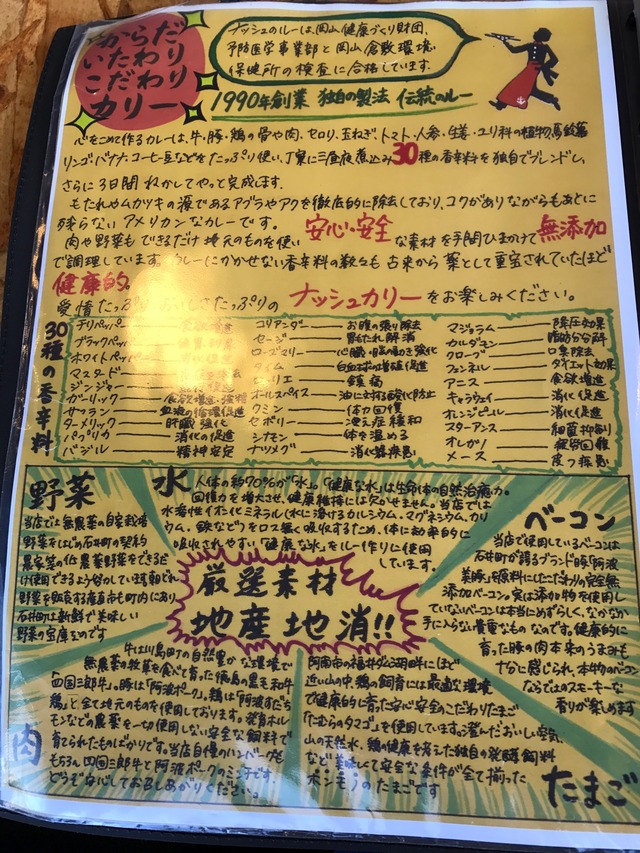 からだ
いたわり
こだわり
カリー
ナッシュのルーは、岡山健康づくり財団、
予防医学事業部と岡山倉敷環境、
保健所の検査に合格しています。
1990年創業 独自の製法 伝統のルー
心をこめて作るカレーは、牛・豚・鶏の骨や肉、セロリ、玉ねぎ、トマト・人参・生姜・ユリ科の植物、馬鈴薯
リンゴ、バナナ、コーヒー豆などをたっぷり使い、丁寧に三昼夜煮込み30種の香辛料を独自でブレンドし、
さらに3日間ねかしてやっと完成します。
もたれやムカツキの源であるアブラやアクを徹底的に除去しており、コクがありながらもあとに
残らないアメリカンなカレーです。
肉や野菜もできるだけ地元のものを使い 安心・安全な素材を手間ひまかけて無添加
で調理しています。カレーにかかせない香辛料の数々も古来から薬として重宝されていたほど
健康的。
愛情たっぷり おいしさたっぷりの ナッシュカリー をお楽しみください。
30種の香辛料
チリペッパー 食欲増進
ブラックペッパー
ホワイトペッパー
マスタード
ジンジャー
ガーリック 食欲増進・強精
サフラン 血液の循環促進
ターメリック 肝臓強化
パプリカ 消化の促進
バジル 精神安定
コリアンダー お腹の張り除去
セージ 胃もたれ解消
ローズマリー 心臓・脳の動き強化
タイム 白血球の増殖促進
ローリエ 鎮痛
オールスパイス 油に対する酸化防止
クミン 体力回復
セボリー 凍え症緩和
シナモン 体を温める
ナツメグ 消化器疾患
マジョラム 降圧効果
カルダモン 脂肪分分解
クローブ 口臭除去
フェンネル ダイエット効果
アニス 食欲増進
キャラウェイ 消化促進
オレンジピール 消化促進
スターアンス 細菌抑制
オレガノ 疲労回復
メース 皮フ疾患
野菜
当店では無農薬の自家栽培
野菜をはじめ石井町の契約
農家営の低農薬野菜をできるだ
け使用できるよう努力しています。朝どれ
野菜を販売する産直市も町内にあり
石井町は新鮮で美味しい
野菜の宝庫なのです
水
人体の約70%が「水」。「健康な水」は生命体の自然治癒力。
回復力を増大させ、健康維持には欠かせません。当店では
水溶性イオン化ミネラル(水に溶けるカルシウム、マグネシウム、カリ
ウム、鉄など)をロス無く吸収するため、体に効率的に
吸収されやすい「健康な水」をルー作りに使用
しています。
ベーコン
当店で使用しているベーコンは
石井町が誇るブランド豚「阿波
美豚」を原料にしたこだわりの完全無
添加ベーコン。実は添加物を使用し
ていないベーコンは本当にめずらしく、なかなか
手に入らない貴重なもの なのです。健康的に
育った豚の肉本来のうまみも
十分に感じられ、本物のベーコン
ならではのスモーキーな
香りが楽しめます
厳選素材
地産地消!!
肉
牛は川島町の自然豊かな環境で
無農薬の牧草を食べて育った徳島の黒毛和牛
「四国三郎牛」。豚は「阿波ポーク」。鶏は「阿波すだち
鶏」と全て地元のものを使用しております。発育ホル
モンなどの農薬を一切使用しない安全な飼料で
育てられたものばかりです。当店自慢のハンバーグも
もちろん四国三郎牛と阿波ポークのミンチです
どうぞ安心してお召しあがりください。
阿南市の福井ダム湖畔にほど
近い山の中、鶏の飼育には最適な環境
で健康的に育った安心安全のこだわりたまご
「たむらのタマゴ」を使用しています。澄んだおいしい空気、
山の天然水、鶏の健康を考えた独自の発酵飼料
など美味して安全な条件が全て揃った
ホンモノのたまごです
たまご